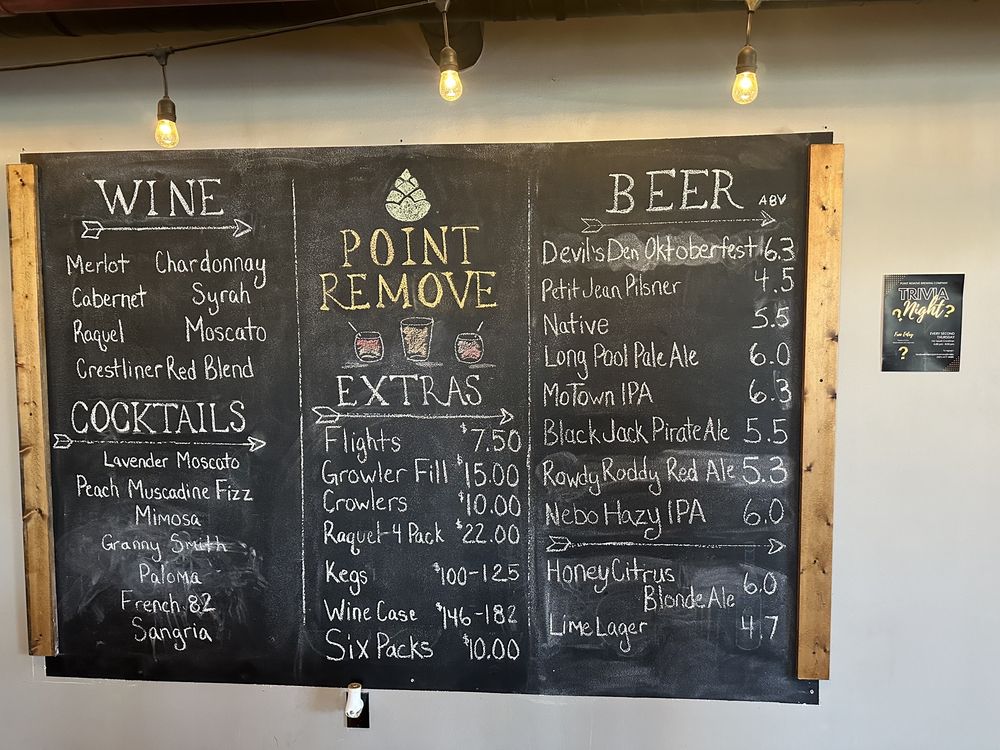 WINE
Merlot Chardonnay
Cabernet Syrah
Raquel Moscato
Crestliner Red Blend
COCKTAILS
Lavender Moscato
Peach Muscadine Fizz
Mimosa
Granny Smith
Paloma
French 82
Sangria
POINT
REMOVE
EXTRAS
Flights $7.50
Growler Fill $15.00
Crowlers $10.00
Raquel-4 Pack $22.00
Kegs $100-125
Wine Case $146-182
Six Packs $10.00
BEER ABV
Devil's Den Oktoberfest 6.3
Petit Jean Pilsner 4.5
Native 5.5
Long Pool Pale Ale 6.0
MoTown IPA 6.3
Black Jack Pirate Ale 5.5
Rowdy Roddy Red Ale 5.3
Nebo Hazy IPA 6.0
Honey Citrus
Blonde Ale 6.0
Lime Lager 4.7
POINT REMOVE BREWING COMPANY
TRIVIA
Night
EVERY SECOND
THURSDAY